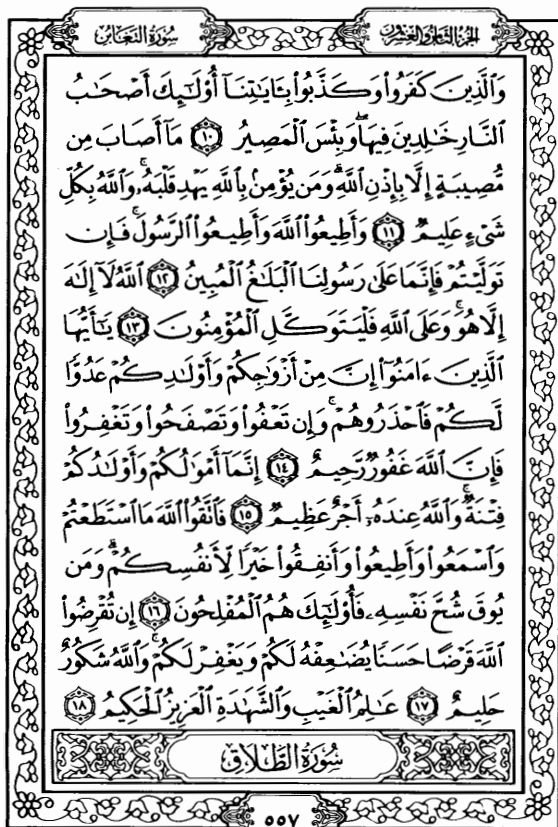 سُورَةُ التَّغَابُنِ
الجُزْءُ الثَّامِنُ وَالْعِشْرُونَ
وَالَّذِينَ كَفَرُوا۟ وَكَذَّبُوا۟ بِـَٔايَـٰتِنَآ أُو۟لَـٰٓئِكَ أَصْحَـٰبُ
النَّارِ خَـٰلِدِينَ فِيهَا ۖ وَبِئْسَ الْمَصِيرُ ١٠ مَآ أَصَابَ مِن
مُّصِيبَةٍ إِلَّا بِإِذْنِ اللَّهِ ۗ وَمَن يُؤْمِنۢ بِاللَّهِ يَهْدِ قَلْبَهُۥ ۚ وَاللَّهُ بِكُلِّ
شَىْءٍ عَلِيمٌ ١١ وَأَطِيعُوا۟ اللَّهَ وَأَطِيعُوا۟ الرَّسُولَ ۚ فَإِن
تَوَلَّيْتُمْ فَإِنَّمَا عَلَىٰ رَسُولِنَا الْبَلَـٰغُ الْمُبِينُ ١٢ اللَّهُ لَآ إِلَـٰهَ
إِلَّا هُوَ ۚ وَعَلَى اللَّهِ فَلْيَتَوَكَّلِ الْمُؤْمِنُونَ ١٣ يَـٰٓأَيُّهَا
الَّذِينَ ءَامَنُوٓا۟ إِنَّ مِنْ أَزْوَٰجِكُمْ وَأَوْلَـٰدِكُمْ عَدُوًّا
لَّكُمْ فَاحْذَرُوهُمْ ۚ وَإِن تَعْفُوا۟ وَتَصْفَحُوا۟ وَتَغْفِرُوا۟
فَإِنَّ اللَّهَ غَفُورٌ رَّحِيمٌ ١٤ إِنَّمَآ أَمْوَٰلُكُمْ وَأَوْلَـٰدُكُمْ
فِتْنَةٌ ۚ وَاللَّهُ عِندَهُۥٓ أَجْرٌ عَظِيمٌ ١٥ فَاتَّقُوا۟ اللَّهَ مَا اسْتَطَعْتُمْ
وَاسْمَعُوا۟ وَأَطِيعُوا۟ وَأَنفِقُوا۟ خَيْرًا لِّأَنفُسِكُمْ ۗ وَمَن
يُوقَ شُحَّ نَفْسِهِۦ فَأُو۟لَـٰٓئِكَ هُمُ الْمُفْلِحُونَ ١٦ إِن تُقْرِضُوا۟
اللَّهَ قَرْضًا حَسَنًا يُضَـٰعِفْهُ لَكُمْ وَيَغْفِرْ لَكُمْ ۚ وَاللَّهُ شَكُورٌ
حَلِيمٌ ١٧ عَـٰلِمُ الْغَيْبِ وَالشَّهَـٰدَةِ الْعَزِيزُ الْحَكِيمُ ١٨
سُورَةُ الطَّلَاقِ
٥٥٧